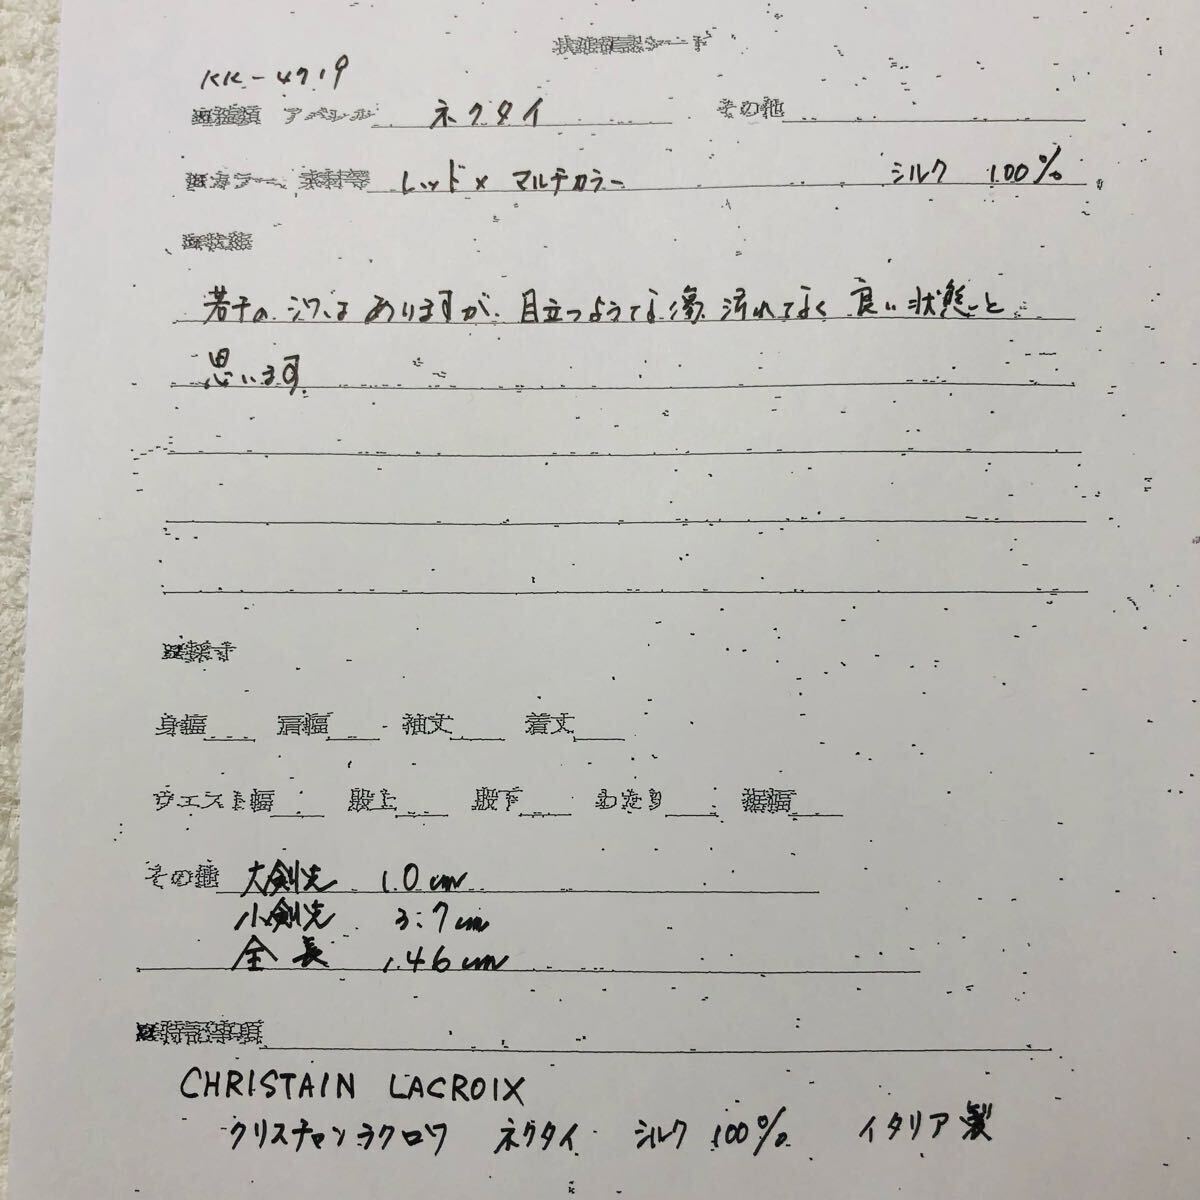 状態確認シート
KK-4719
アパレル ネクタイ その他
カラー、素材等 レッド×マルチカラー シルク 100%
状態
若干のシワはありますが、目立つような傷、汚れてなく 良い状態と
思います。
採寸
身幅 肩幅 袖丈 着丈
ウエスト幅 股上 股下 わたり 裾幅
その他 大剣先 10cm
小剣先 3.7cm
全長 146cm
特記事項
CHRISTAIN LACROIX
クリスチャンラクロワ ネクタイ シルク 100% イタリア製